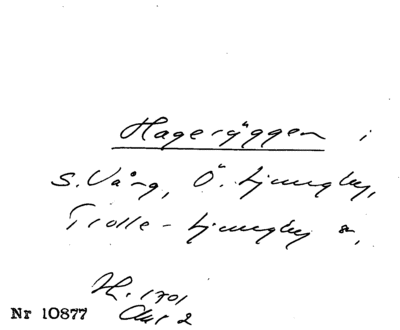 Hageryggen i
S. Vång, Ö. Ljungby,
Trolle-Ljungby sn,
Hk. 1701
Akt 2
Nr 10877